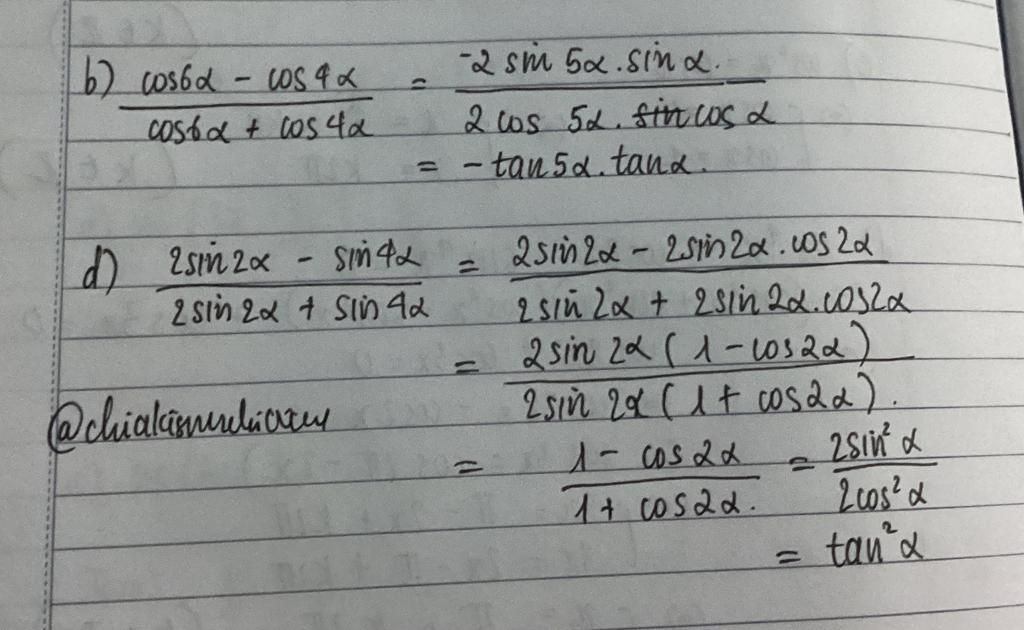 b) cos6α − cos4α / cos6α + cos4α = -2 sin 5α . sin α. / 2 cos 5α . sin cos α
= − tan 5α . tan α.
d) 2sin2α − sin4α / 2sin2α + sin4α = 2sin2α − 2sin2α . cos2α / 2sin2α + 2sin2α . cos2α
= 2sin2α (1 − cos2α) / 2sin2α (1 + cos2α).
= 1 − cos2α / 1 + cos2α. = 2sin²α / 2cos²α
= tan²α